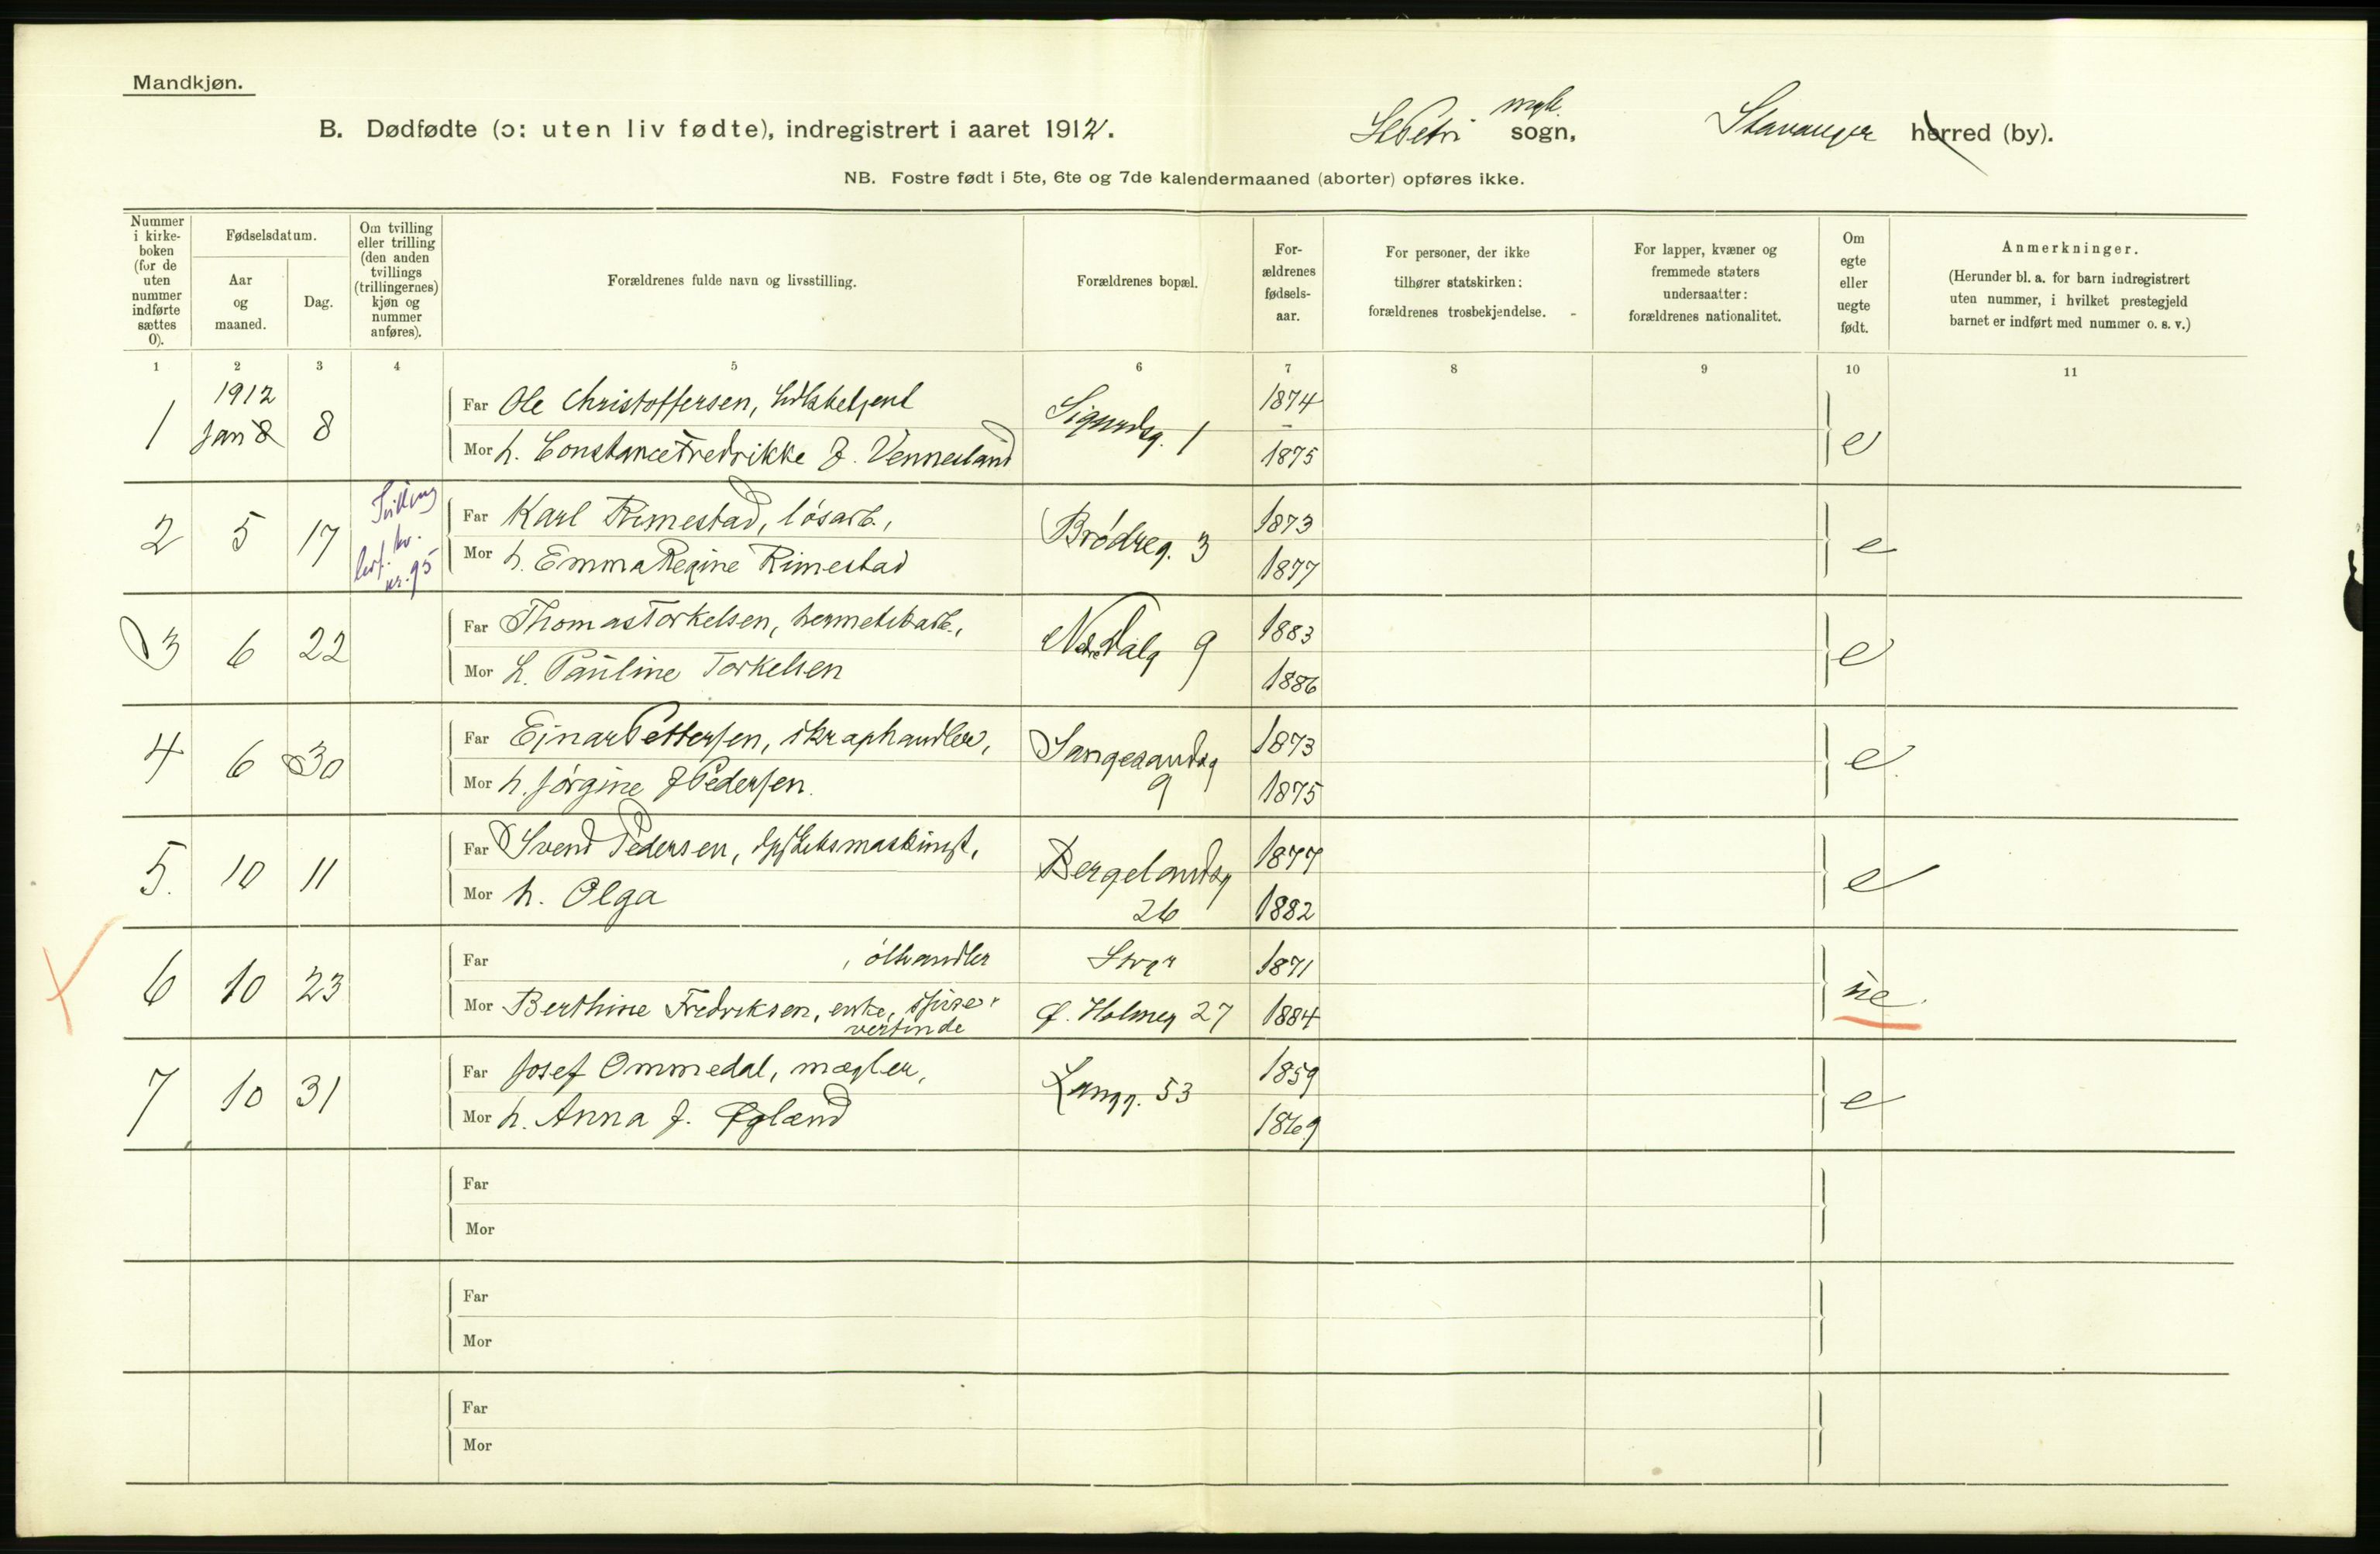 Mandkjøn.
B. Dødfødte (ɔ: uten liv fødte), indregistrert i aaret 1912.
St Petri sogn, Stavanger herred (by).
NB. Fostre født i 5te, 6te og 7de kalendermaaned (aborter) opføres ikke.
Nummer i kirke-boken (for de uten nummer indførte sættes 0).
Fødselsdatum.
Aar og maaned.
Dag.
Om tvilling eller trilling (den anden tvillings (trillingernes) kjøn og nummer anføres).
Forældrenes fulde navn og livsstilling.
Forældrenes bopæl.
For-ældrenes fødsels-aar.
For personer, der ikke tilhører statskirken: forældrenes trosbekjendelse.
For lapper, kvæner og fremmede staters undersaatter: forældrenes nationalitet.
Om egte eller uegte født.
Anmerkninger.
(Herunder bl. a. for barn indregistrert uten nummer, i hvilket prestegjeld barnet er indført med nummer o. s. v.)
1 2 3 4 5 6 7 8 9 10 11
1 1912 Jan 8 Far Ole Christoffersen, Sigurdsg. 1 1874 e
Mor h. Constance Fredrikke f. Vennesland 1875
2 5 17 Tvilling kv. lev. nr. 95 Far Karl Rimestad, løsarb., Brødreg. 3 1873 e
Mor h. Emma Regine Rimestad 1877
3 6 22 Far Thomas Torkelsen, hermetikarb., Nedre Dalg 9 1883 e
Mor h. Pauline Torkelsen 1886
4 6 30 Far Einar Pettersen, skraphandler, Sangesandsg 9 1873 e
Mor h. Jørgine f Pedersen. 1875
5. 10 11 Far Svend Pedersen, Bergelandsg 26 1877 e
Mor h. Olga 1882
6 10 23 Far , ølhandler Stvgr 1871 ue.
Mor Berthine Fredriksen, enke, spisevertinde Ø. Holmeg 27 1884
7 10 31 Far Josef Ommedal, mægler, Langg. 53 1859 e
Mor h. Anna f. Øgland 1869
Far
Mor
Far
Mor
Far
Mor